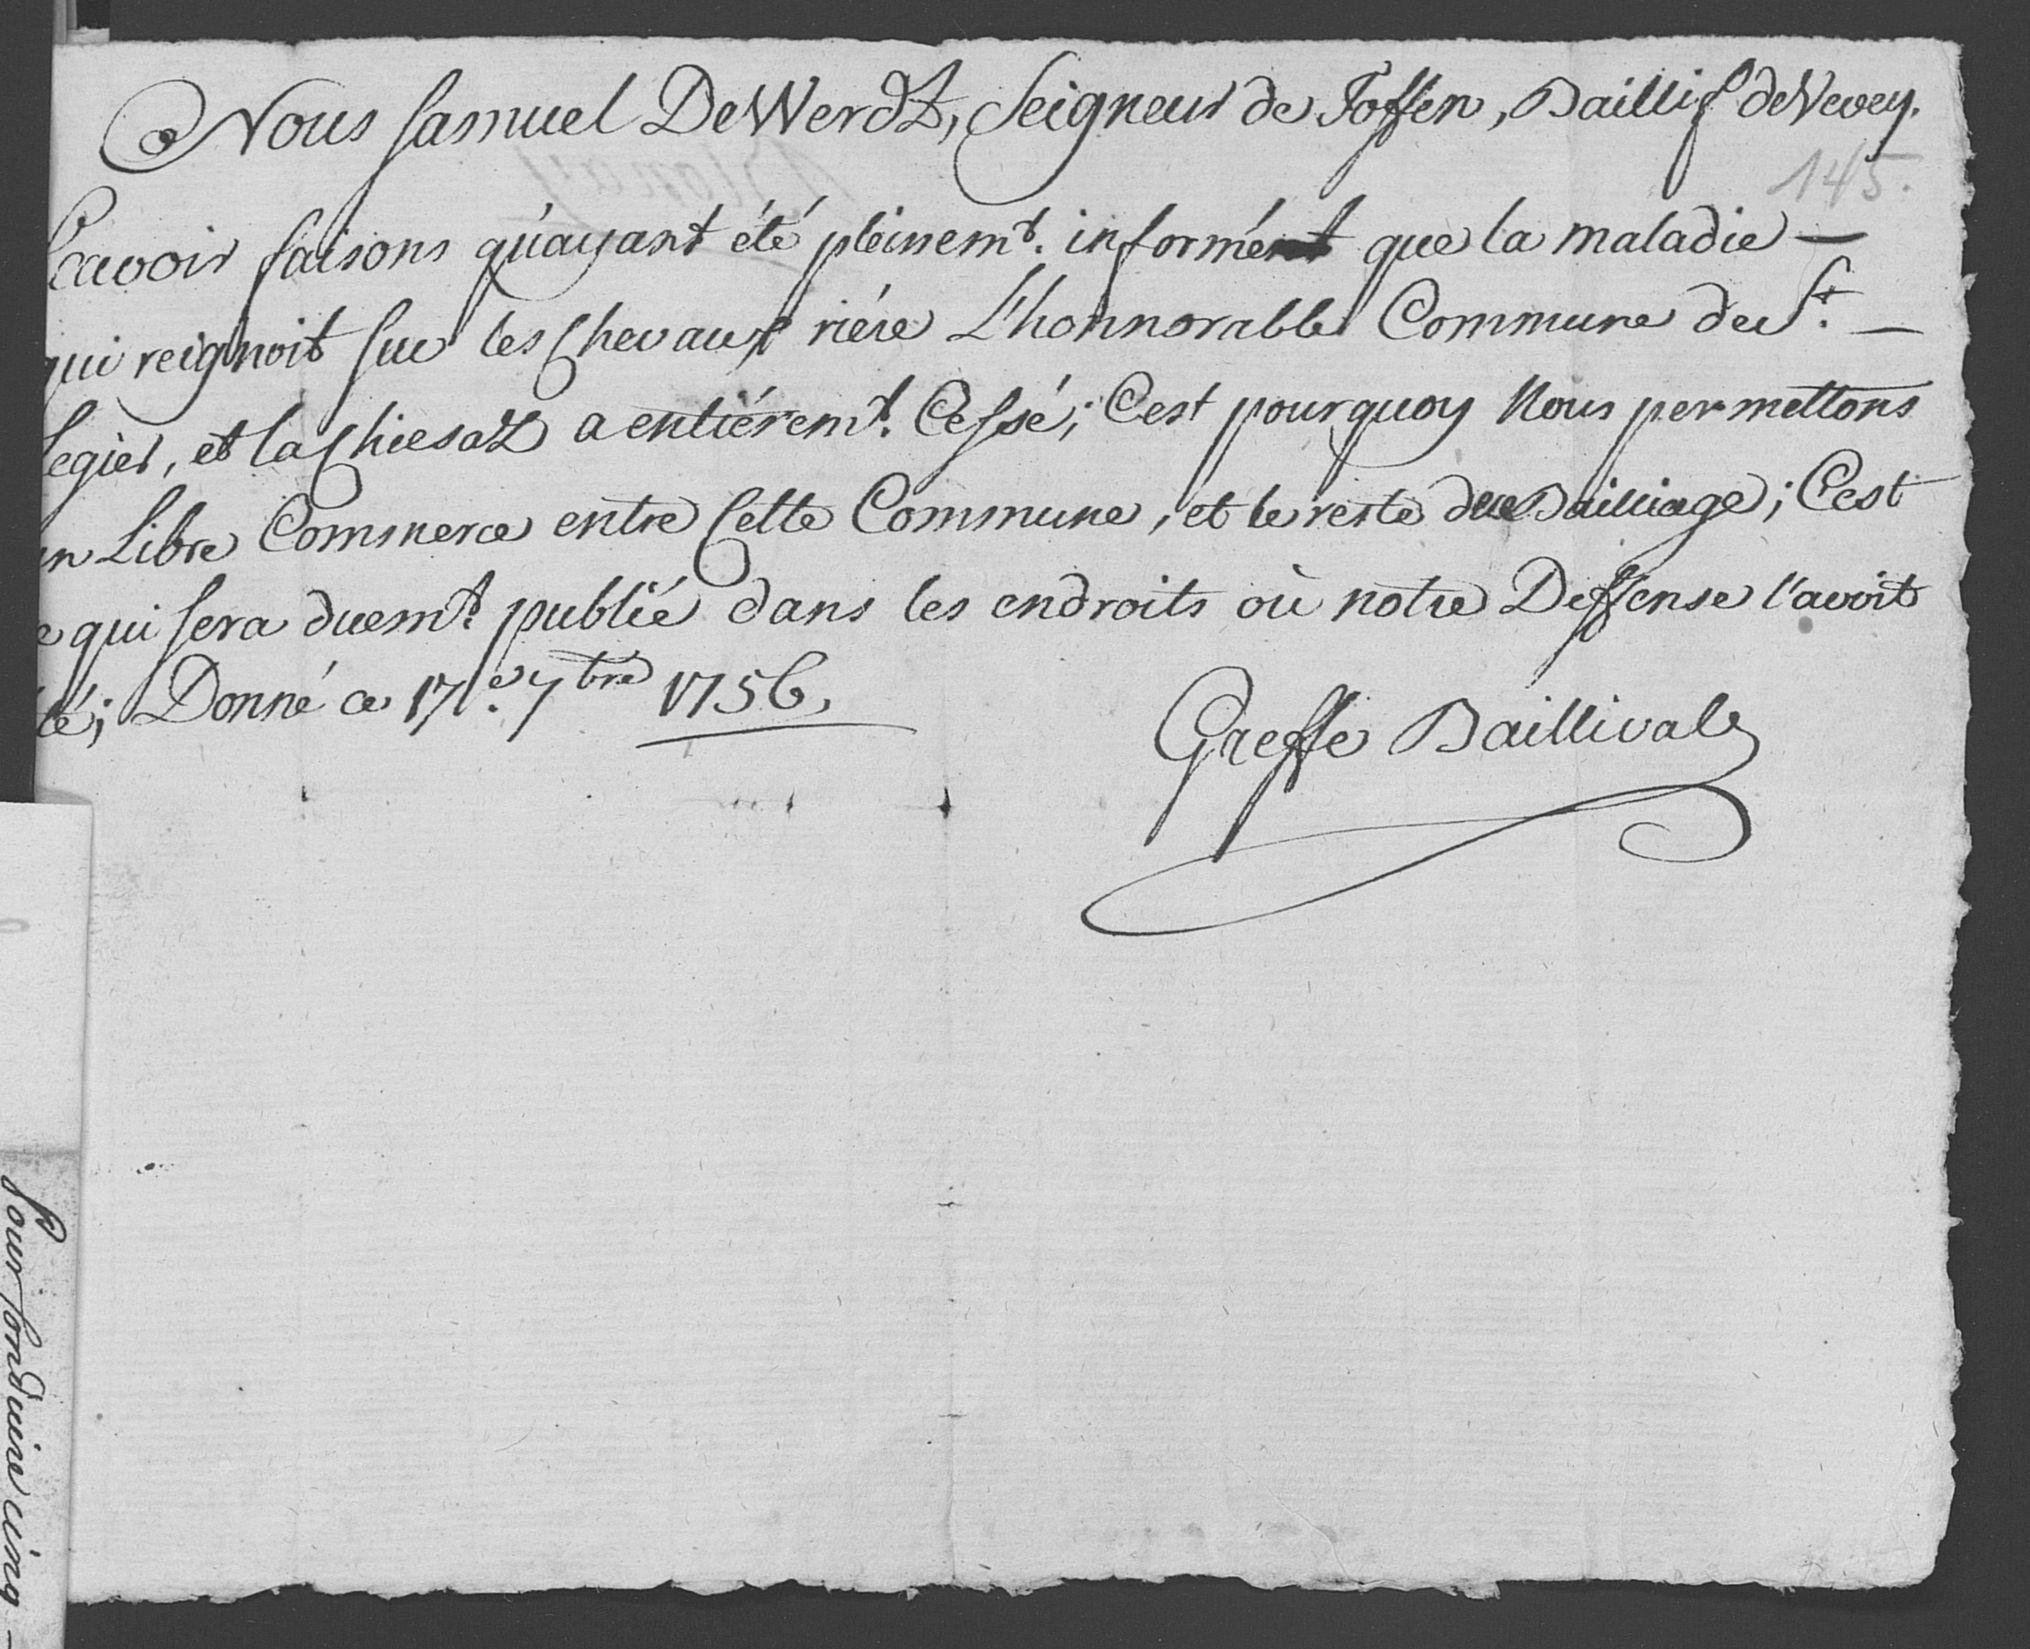 Nous Samuel De Werdt, Seigneur de Toffen, Baillif de Vevey.
145.
Scavoir faisons qu'ayant été pleinemt. informé que la maladie —
qui reignoit sur les Chevaux riére L'honnorable Commune de St. —
Legier, et la Chiesaz a entiéremt. Cessé; C'est pourquoy Nous permettons
un Libre Commerce entre Cette Commune, et le reste du Bailliage; C'est
ce qui sera duemt. publié dans les endroits où notre Deffense l'avoit
été; Donné ce 17.e 7bre 1756.
Greffe Baillival
Pour Conduire cinq